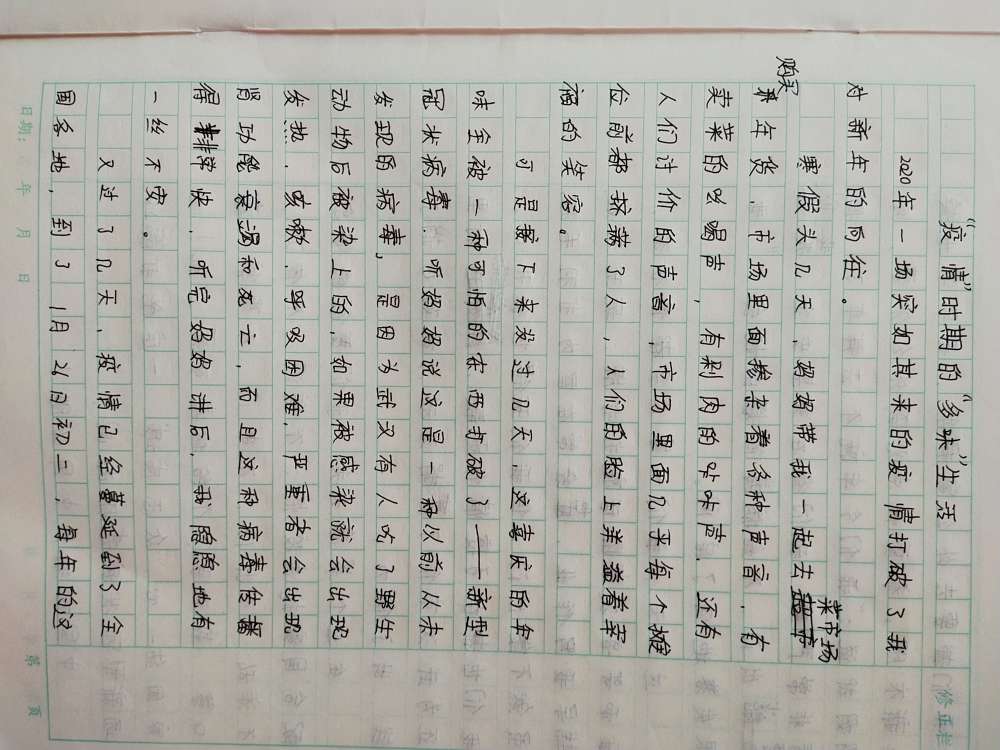 “疫情”时期的“多味”生活
2020年一场突如其来的疫情打破了我
对新年的向往。
寒假头几天，妈妈带我一起去菜市场
购买年货，市场里面掺杂着各种声音，有
卖菜的吆喝声，有剁肉的咔咔声，还有
人们讨价的声音，市场里面几乎每个摊
位前都挤满了人，人们的脸上洋溢着幸
福的笑容。
可是接下来没过几天，这喜庆的年
味全被一种可怕的东西打破了——新型
冠状病毒．听妈妈说这是一种以前从未
发现的病毒，是因为武汉有人吃了野生
动物后被染上的，如果被感染就会出现
发热．咳嗽．呼吸困难，严重者会出现
肾功能衰竭和死亡，而且这种病毒传播
得非常快．听完妈妈讲后，我隐隐地有
一丝不安。
又过了几天，疫情已经蔓延到了全
国各地，到了1月26日初二，每年的这
修正栏
日期： 年 月 日
第 页